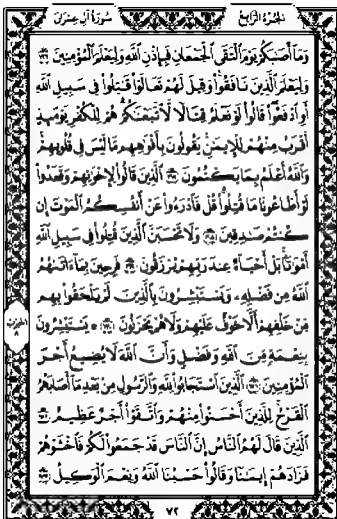 سورة آل عمران
الجزء الرابع
وَمَا أَصَٰبَكُمْ يَوْمَ ٱلْتَقَى ٱلْجَمْعَانِ فَبِإِذْنِ ٱللَّهِ وَلِيَعْلَمَ ٱلْمُؤْمِنِينَ ١٦٦
وَلِيَعْلَمَ ٱلَّذِينَ نَافَقُوا۟ وَقِيلَ لَهُمْ تَعَالَوْا۟ قَٰتِلُوا۟ فِى سَبِيلِ ٱللَّهِ
أَوِ ٱدْفَعُوا۟ قَالُوا۟ لَوْ نَعْلَمُ قِتَالًا لَّٱتَّبَعْنَٰكُمْ هُمْ لِلْكُفْرِ يَوْمَئِذٍ
أَقْرَبُ مِنْهُمْ لِلْإِيمَٰنِ يَقُولُونَ بِأَفْوَٰهِهِم مَّا لَيْسَ فِى قُلُوبِهِمْ
وَٱللَّهُ أَعْلَمُ بِمَا يَكْتُمُونَ ١٦٧ ٱلَّذِينَ قَالُوا۟ لِإِخْوَٰنِهِمْ وَقَعَدُوا۟
لَوْ أَطَاعُونَا مَا قُتِلُوا۟ قُلْ فَٱدْرَءُوا۟ عَنْ أَنفُسِكُمُ ٱلْمَوْتَ إِن
كُنتُمْ صَٰدِقِينَ ١٦٨ وَلَا تَحْسَبَنَّ ٱلَّذِينَ قُتِلُوا۟ فِى سَبِيلِ ٱللَّهِ
أَمْوَٰتًۢا بَلْ أَحْيَآءٌ عِندَ رَبِّهِمْ يُرْزَقُونَ ١٦٩ فَرِحِينَ بِمَآ ءَاتَىٰهُمُ
ٱللَّهُ مِن فَضْلِهِۦ وَيَسْتَبْشِرُونَ بِٱلَّذِينَ لَمْ يَلْحَقُوا۟ بِهِم
مِّنْ خَلْفِهِمْ أَلَّا خَوْفٌ عَلَيْهِمْ وَلَا هُمْ يَحْزَنُونَ ١٧٠ يَسْتَبْشِرُونَ
بِنِعْمَةٍ مِّنَ ٱللَّهِ وَفَضْلٍ وَأَنَّ ٱللَّهَ لَا يُضِيعُ أَجْرَ
ٱلْمُؤْمِنِينَ ١٧١ ٱلَّذِينَ ٱسْتَجَابُوا۟ لِلَّهِ وَٱلرَّسُولِ مِنۢ بَعْدِ مَآ أَصَابَهُمُ
ٱلْقَرْحُ لِلَّذِينَ أَحْسَنُوا۟ مِنْهُمْ وَٱتَّقَوْا۟ أَجْرٌ عَظِيمٌ ١٧٢
ٱلَّذِينَ قَالَ لَهُمُ ٱلنَّاسُ إِنَّ ٱلنَّاسَ قَدْ جَمَعُوا۟ لَكُمْ فَٱخْشَوْهُمْ
فَزَادَهُمْ إِيمَٰنًا وَقَالُوا۟ حَسْبُنَا ٱللَّهُ وَنِعْمَ ٱلْوَكِيلُ ١٧٣
٧٢